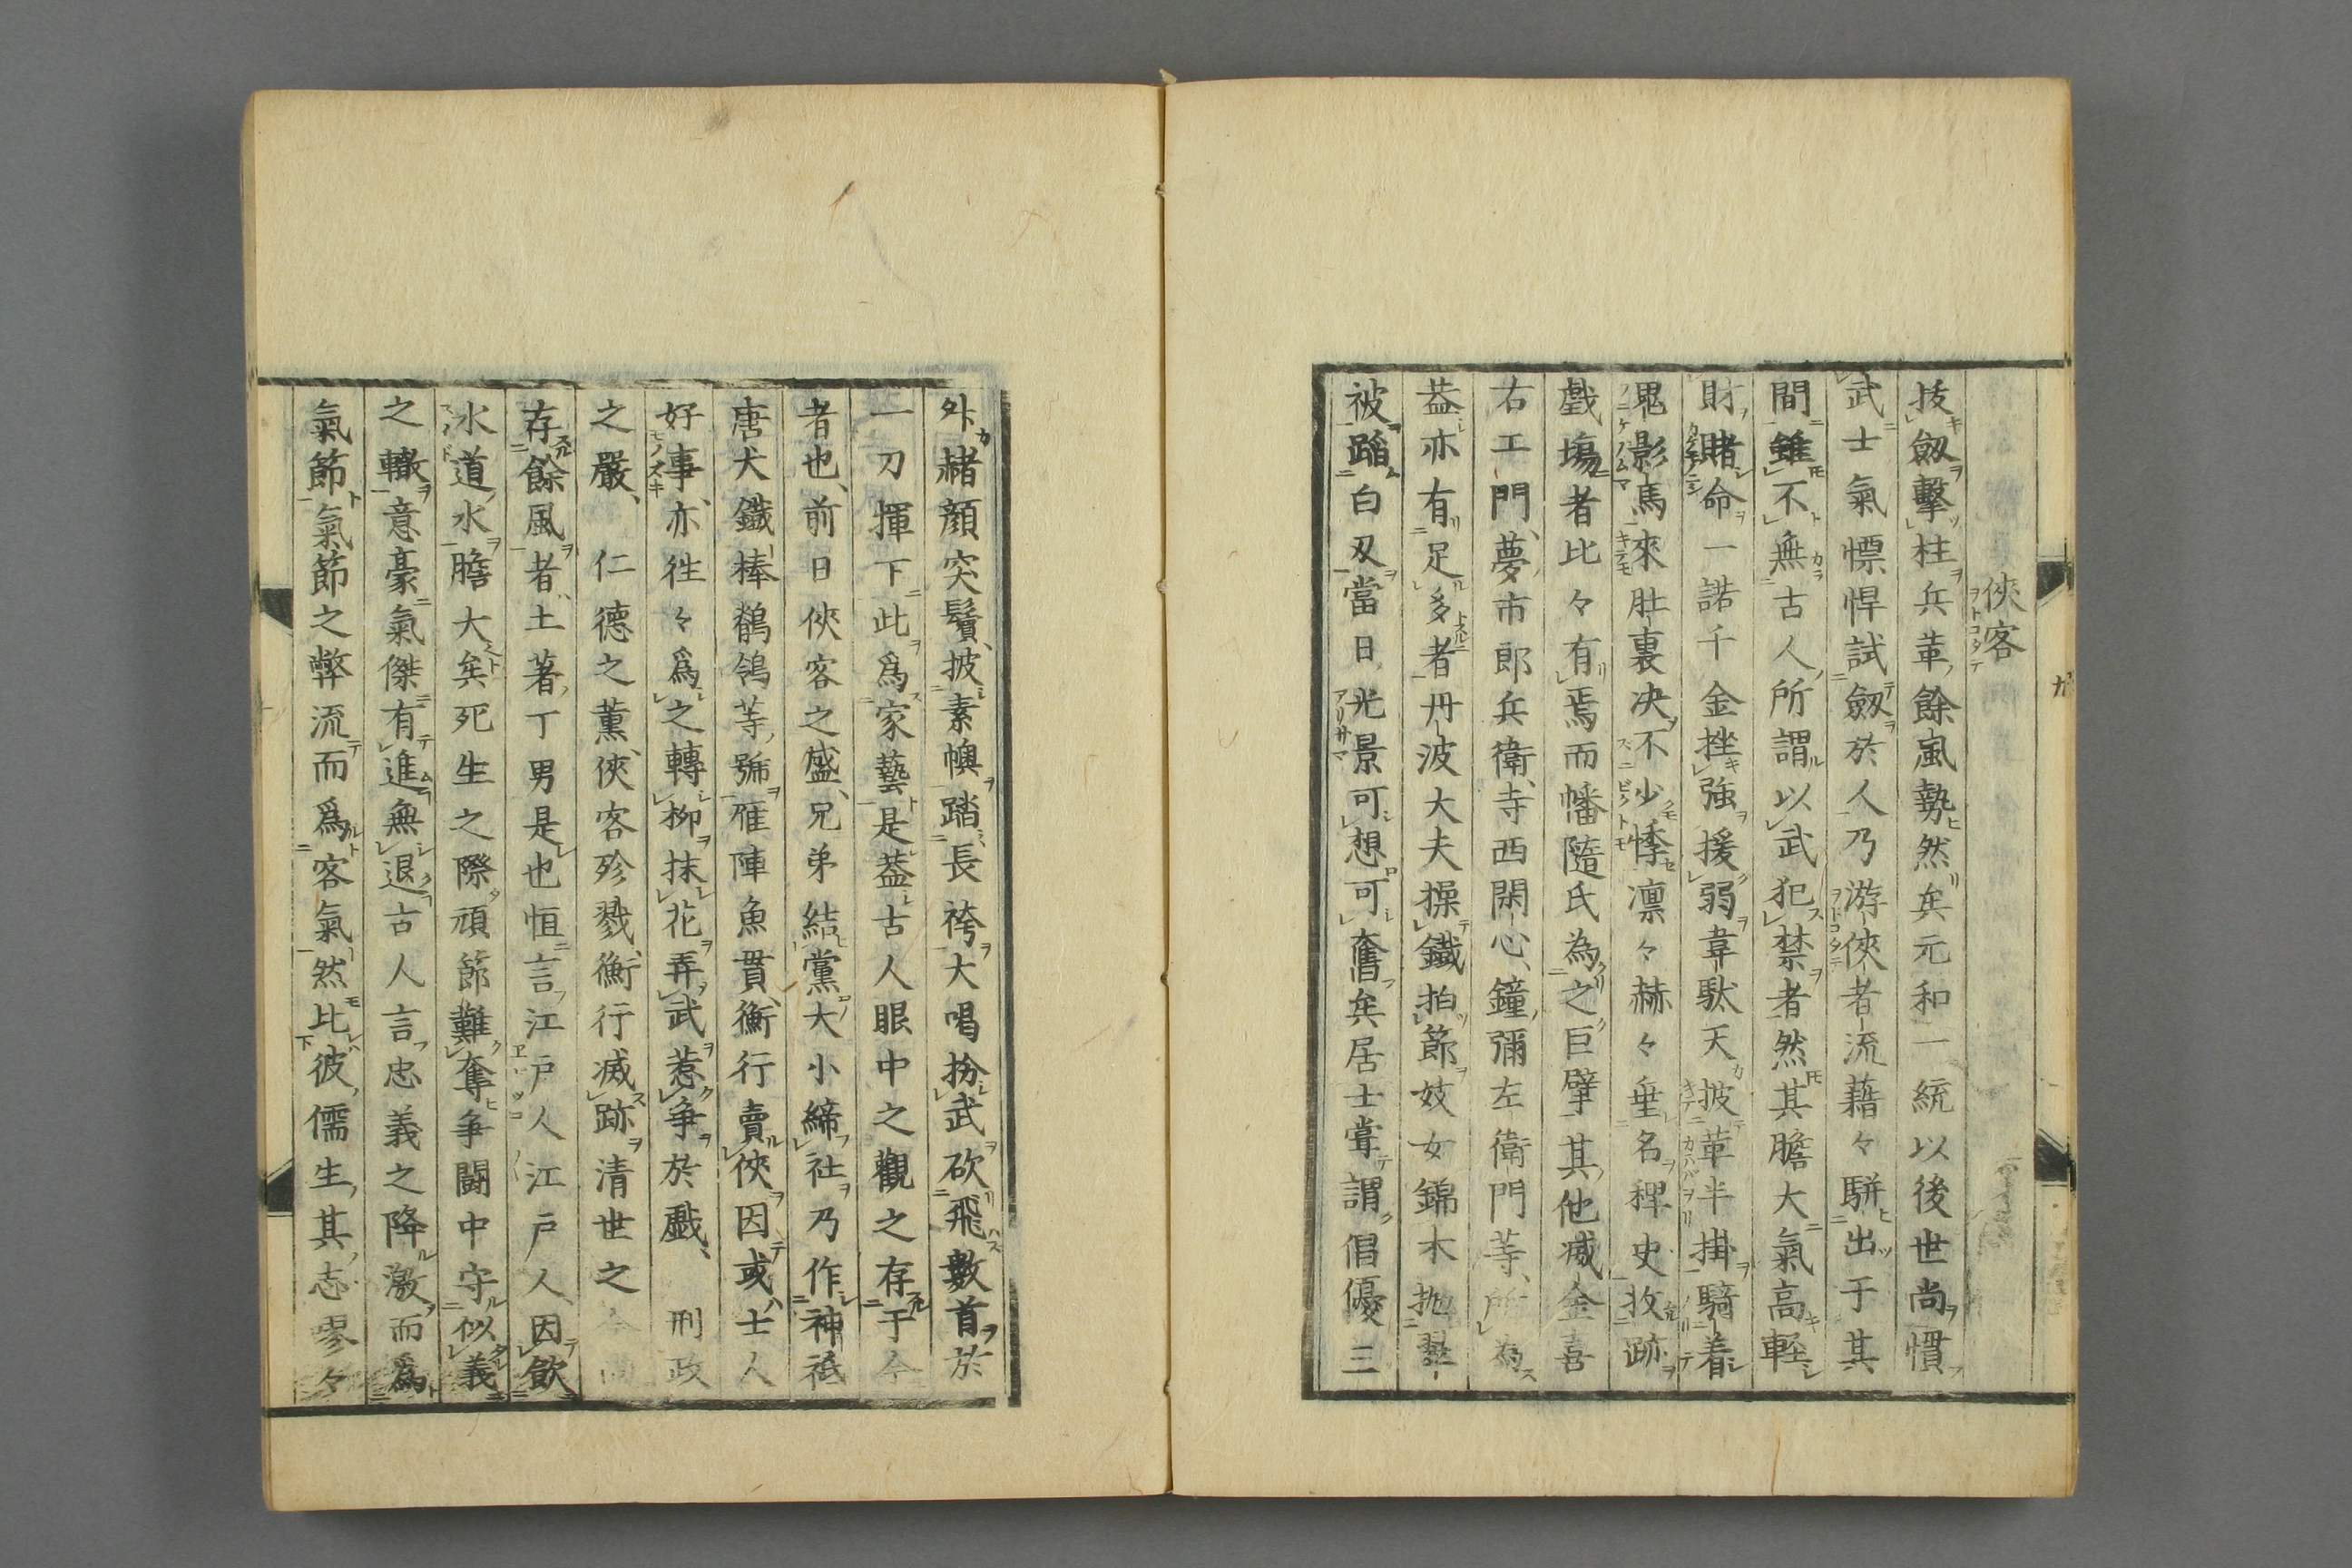 俠客
拔劔擊柱兵革餘風勢然矣元和一統以後世尚慣
武士氣慓悍試劔於人乃游俠者流藉々駢出于其
間雖不無古人所謂以武犯禁者然其膽大氣高輕
財賭命一諾千金挫強援弱韋駄天披革半掛騎着
鬼影馬來肚裏决不少悸凛々赫々垂名稗史攷跡
戲塲者比々有焉而幡隨氏為之巨擘其他减金喜
右エ門夢市郎兵衛寺西閑心鐘彌左衛門等所為
葢亦有足多者丹波大夫操鐵拍節妓女錦木抛
被蹈白刃當日光景可想可奮矣居士嘗謂倡優三
外赭顔突鬢披素幘踏長袴大喝扮武砍飛數首於
一刀揮下此爲家藝是葢古人眼中之觀之存于今
者也前日俠客之盛兄弟結黨大小締社乃作神祇
唐犬鐵棒鶺鴒等號雁陣魚貫衡行賣俠因或士人
好事亦徃々爲之轉柳抹花弄武惹爭於戲刑政
之嚴仁德之薰俠客殄戮衡行滅跡清世之今尚
存餘風者土著丁男是也恒言江戸人江戸人因飲
水道水膽大矣死生之際頑節難奪爭闘中守似義
之轍意豪氣傑有進無退古人言忠義之降激而爲
氣節氣節之弊流而爲客氣然比彼儒生其志嘐々